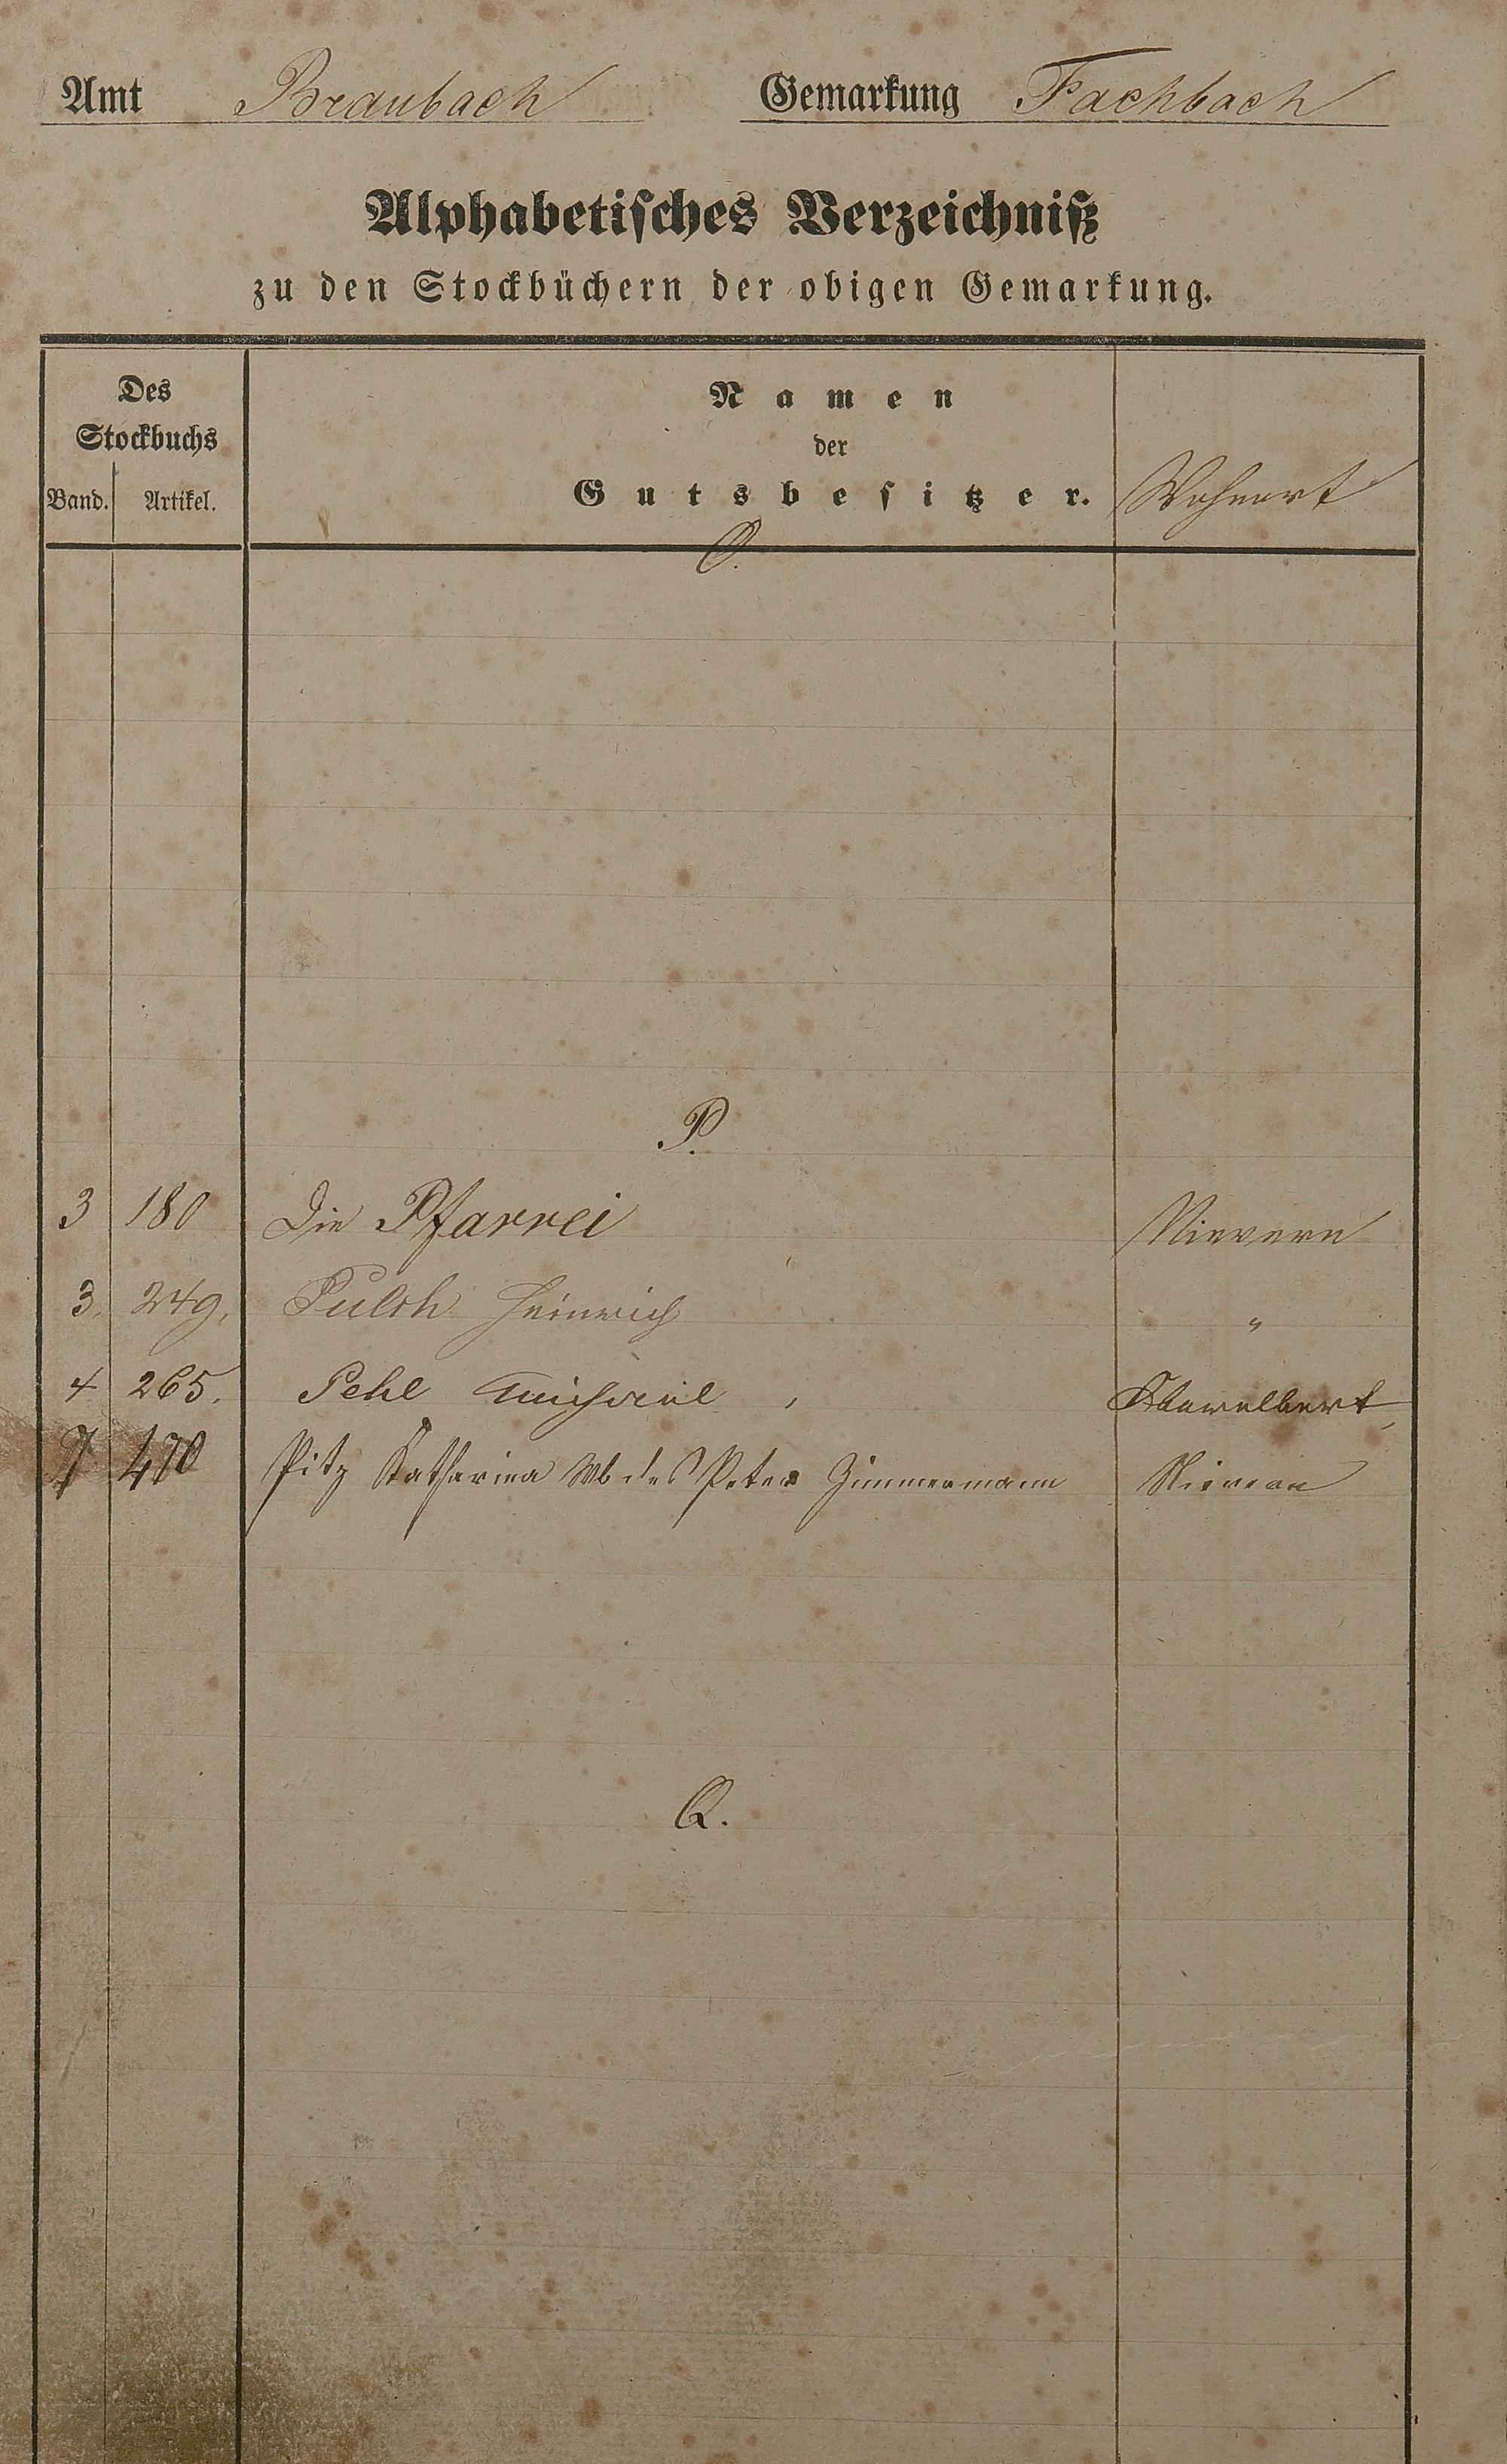 Amt Braubach Gemarkung Fachbach
Alphabetisches Verzeichniß
zu den Stockbüchern der obigen Gemarkung.
Des
Stockbuchs
Band. Artikel.
Namen
der
Gutsbesitzer. Wohnort
O.
P.
3 180 Die Pfarrei Nievern
3. 249. Pulch Heinrich "
4 265. Pehl Michael
7 470 Pitz Katharina Wb des Peter Zimmermann Nievern
Q.